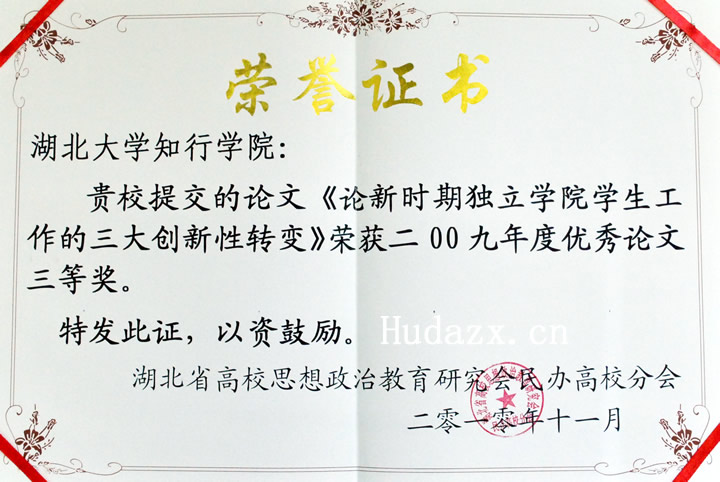 荣誉证书
湖北大学知行学院：
贵校提交的论文《论新时期独立学院学生工
作的三大创新性转变》荣获二00九年度优秀论文
三等奖。
特发此证，以资鼓励。
Hudazx.cn
湖北省高校思想政治教育研究会民办高校分会
二零一零年十一月